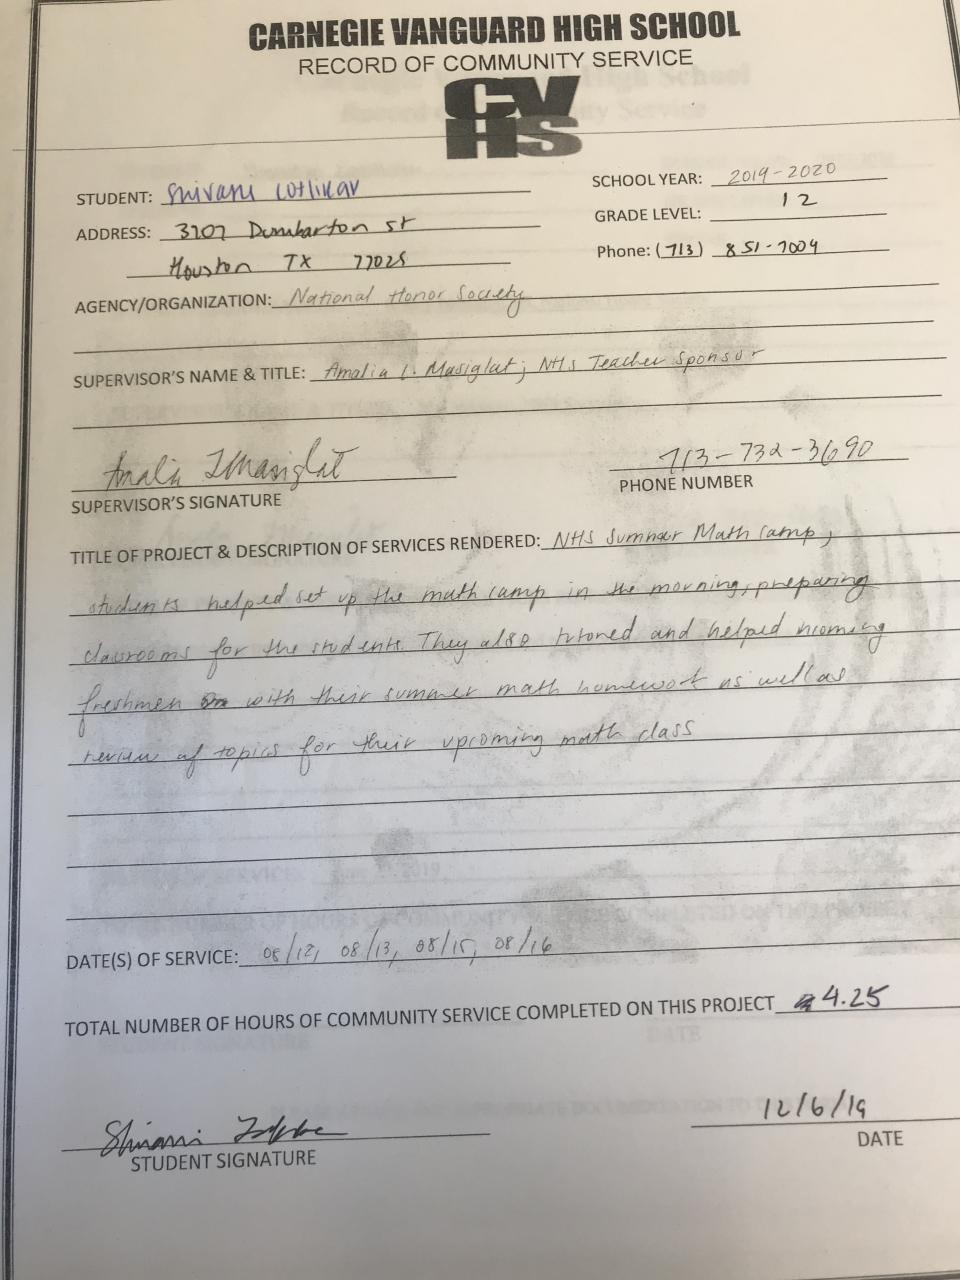 CARNEGIE VANGUARD HIGH SCHOOL
RECORD OF COMMUNITY SERVICE
CV
HS
STUDENT: Shivani Cotlikar
SCHOOL YEAR: 2019-2020
GRADE LEVEL: 12
ADDRESS: 3707 Dumbarton St
Houston TX 77025
Phone: (713) 851-7009
AGENCY/ORGANIZATION: National Honor Society
SUPERVISOR'S NAME & TITLE: Amalia I. Masiglat; NHS Teacher Sponsor
Amalia IMasiglat
713-732-3690
SUPERVISOR'S SIGNATURE
PHONE NUMBER
TITLE OF PROJECT & DESCRIPTION OF SERVICES RENDERED: NHS Summer Math Camp;
students helped set up the math camp in the morning, preparing
classrooms for the students. They also tutored and helped incoming
freshmen with their summer math homework as well as
review of topics for their upcoming math class
DATE(S) OF SERVICE: 08/12, 08/13, 08/15, 08/16
TOTAL NUMBER OF HOURS OF COMMUNITY SERVICE COMPLETED ON THIS PROJECT 4.25
Shivani
12/6/19
STUDENT SIGNATURE
DATE